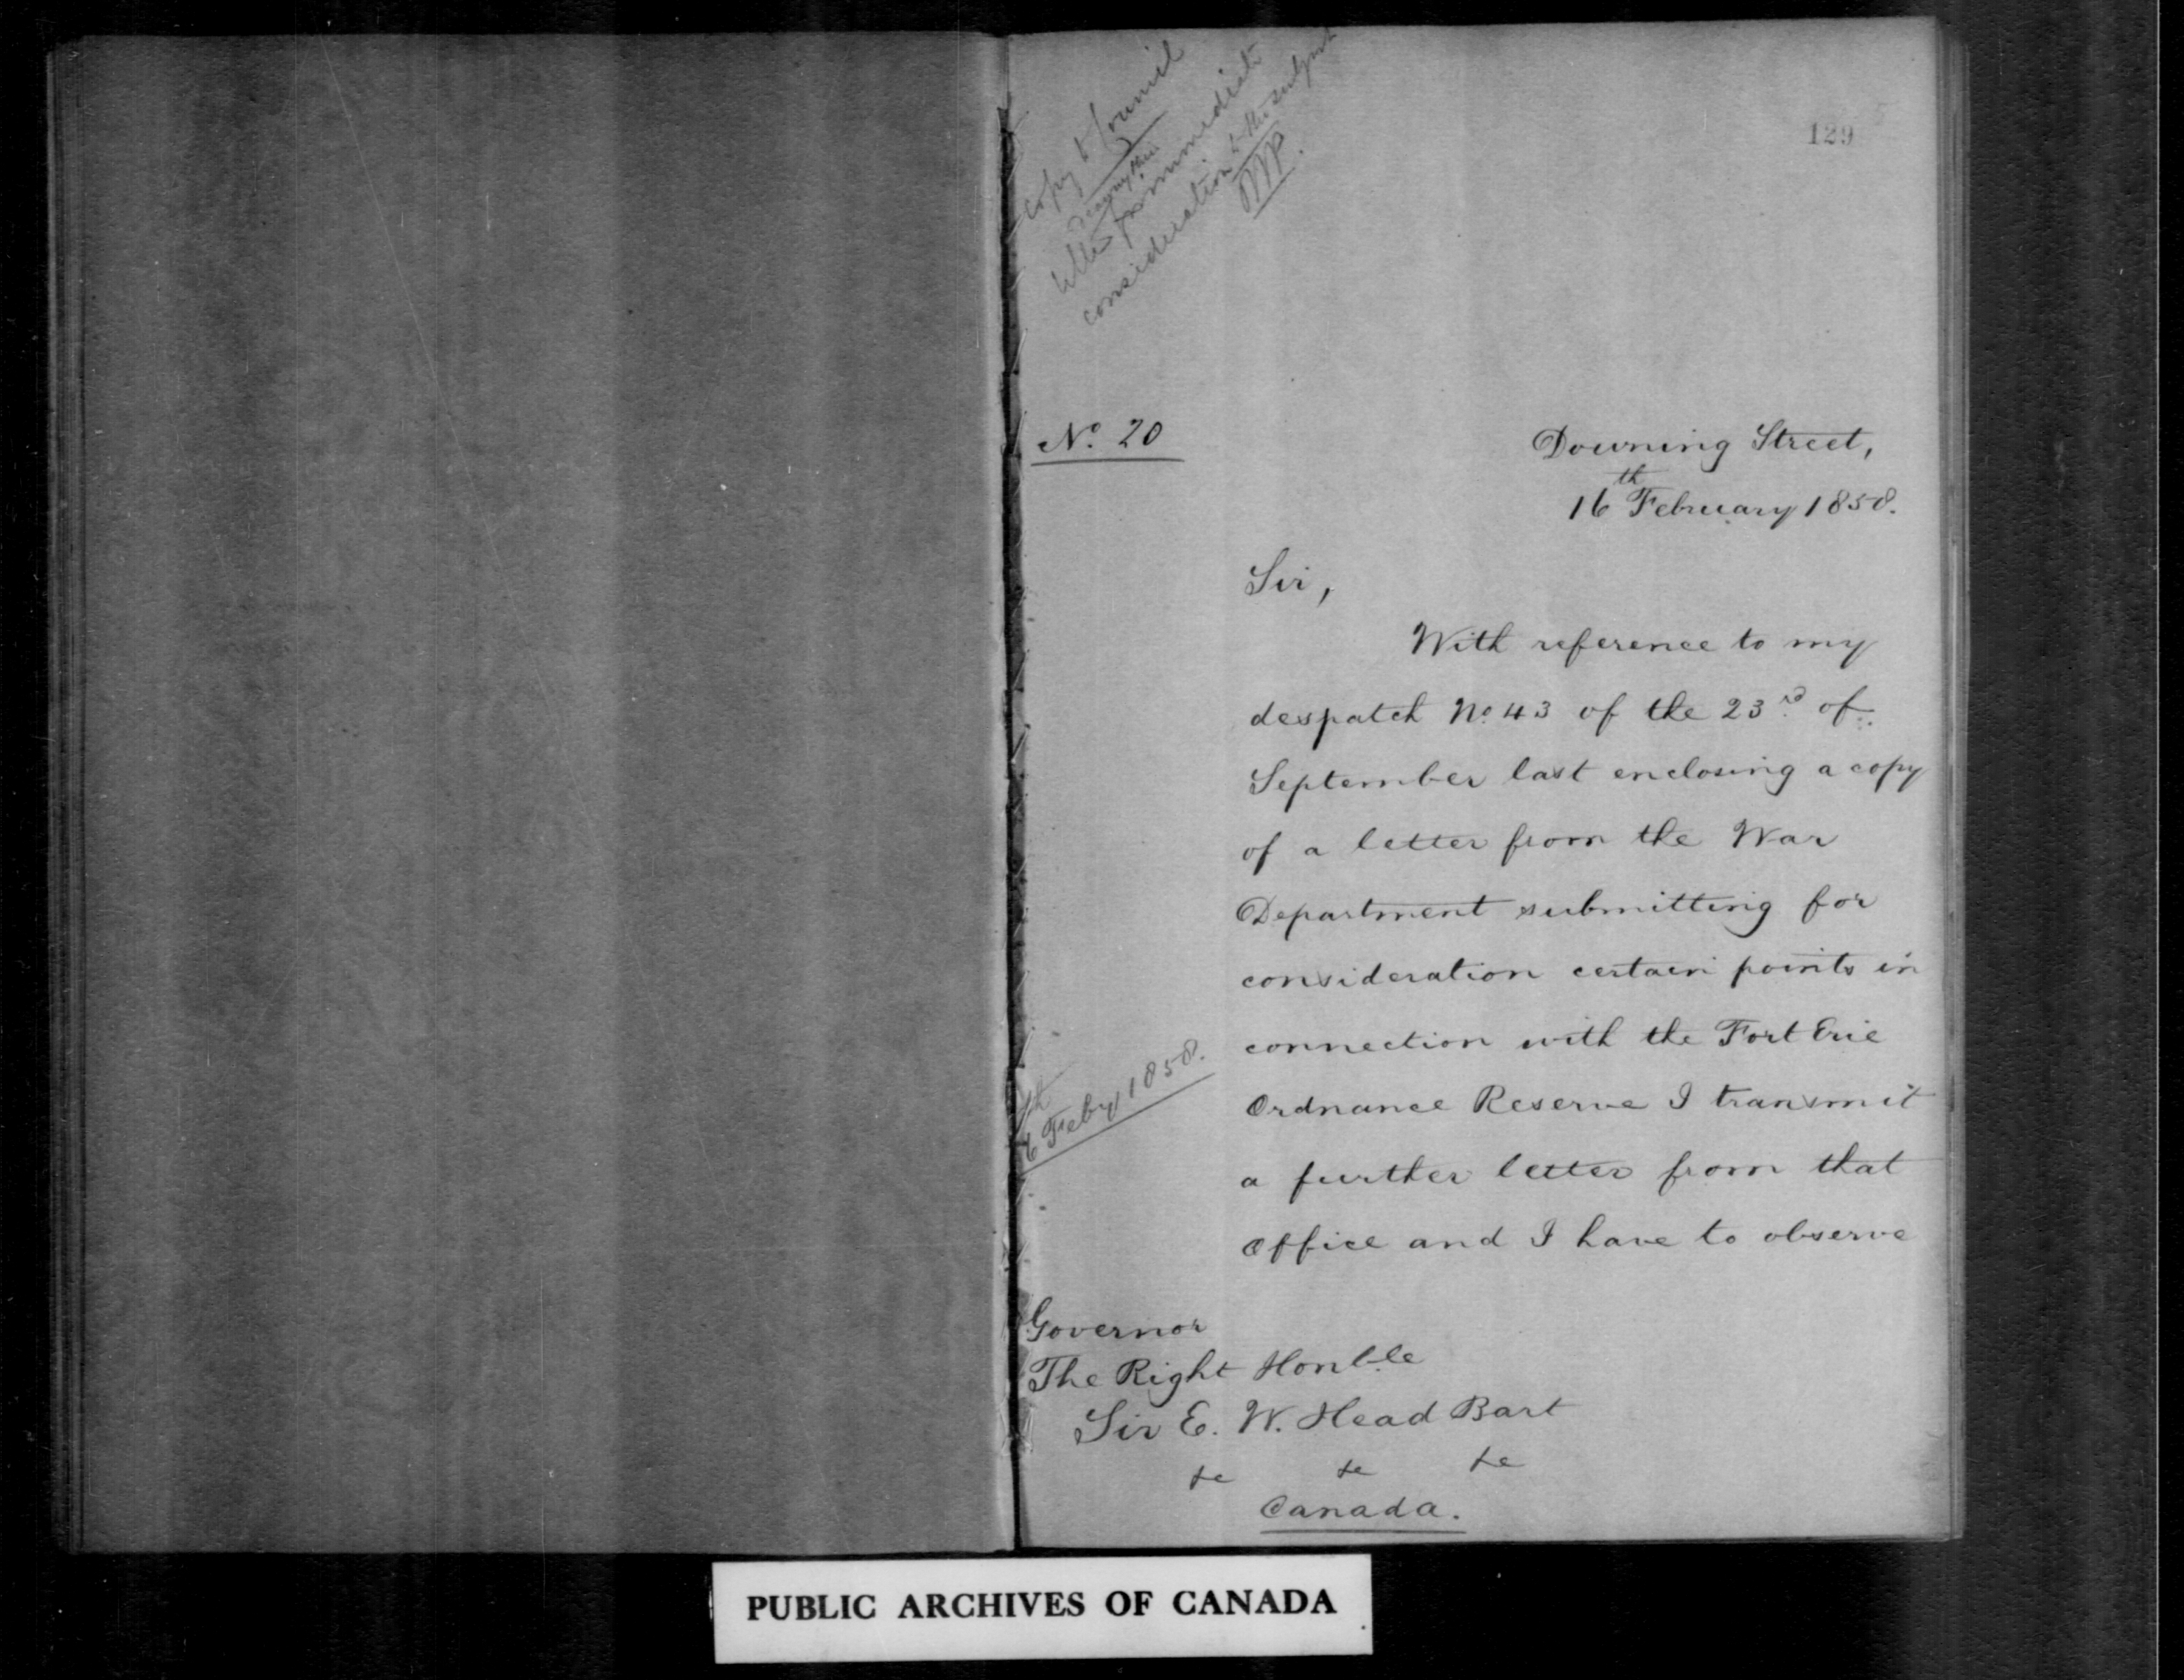 copy to Council
letter for immediate
consideration
129
No. 20
Downing Street,
16th February 1858.
Sir,
With reference to my
despatch No. 43 of the 23rd. of
September last enclosing a copy
of a letter from the War
Department submitting for
consideration certain points in
connection with the Fort Erie
Ordnance Reserve I transmit
a further letter from that
Office and I have to observe
6 Feby 1858.
Governor
The Right Honble
Sir E. W. Head Bart
&c &c &c
Canada.
PUBLIC ARCHIVES OF CANADA